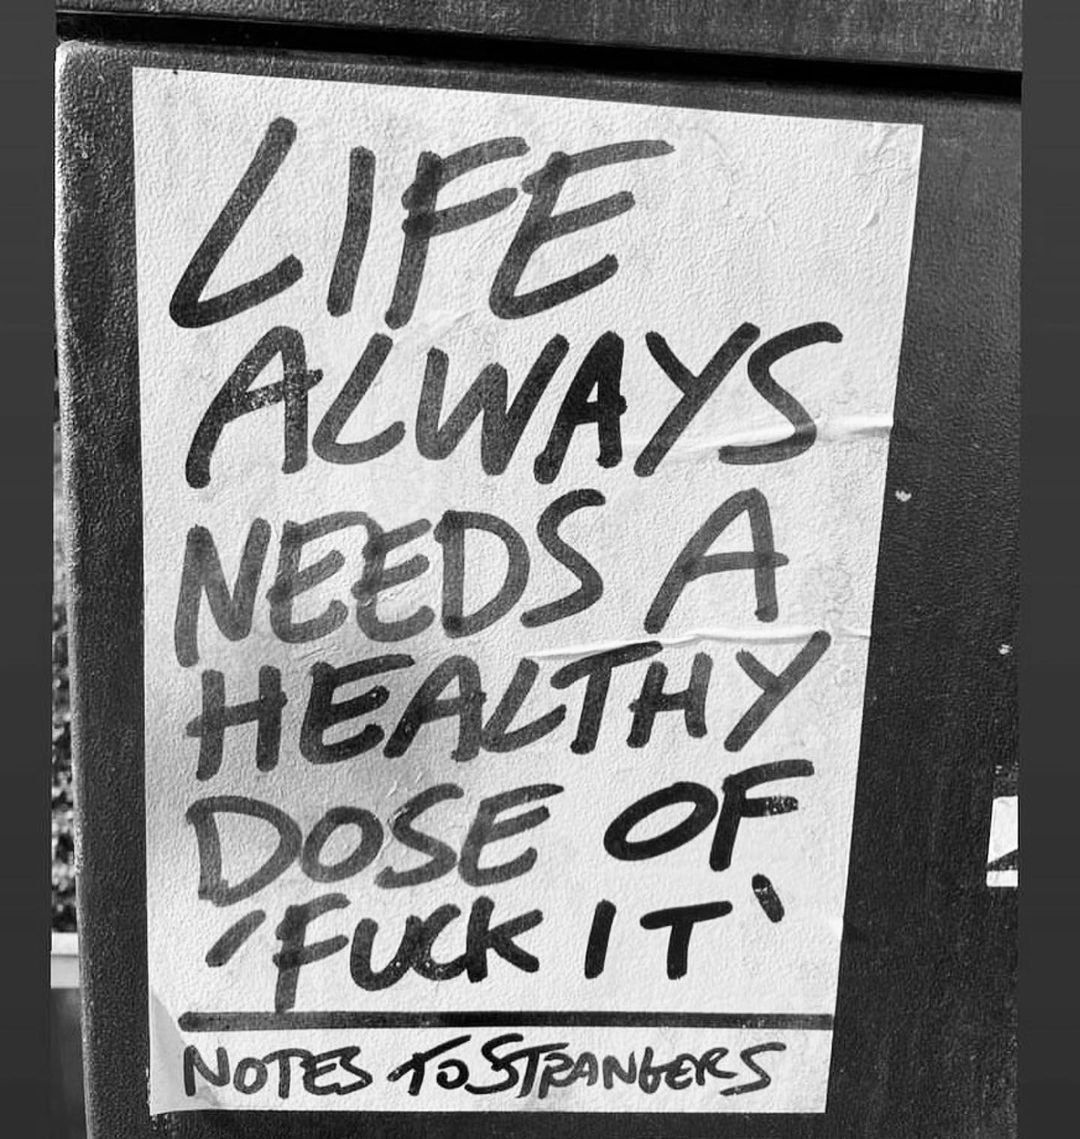 LIFE
ALWAYS
NEEDS A
HEALTHY
DOSE OF
'FUCK IT'
NOTES TO STRANGERS